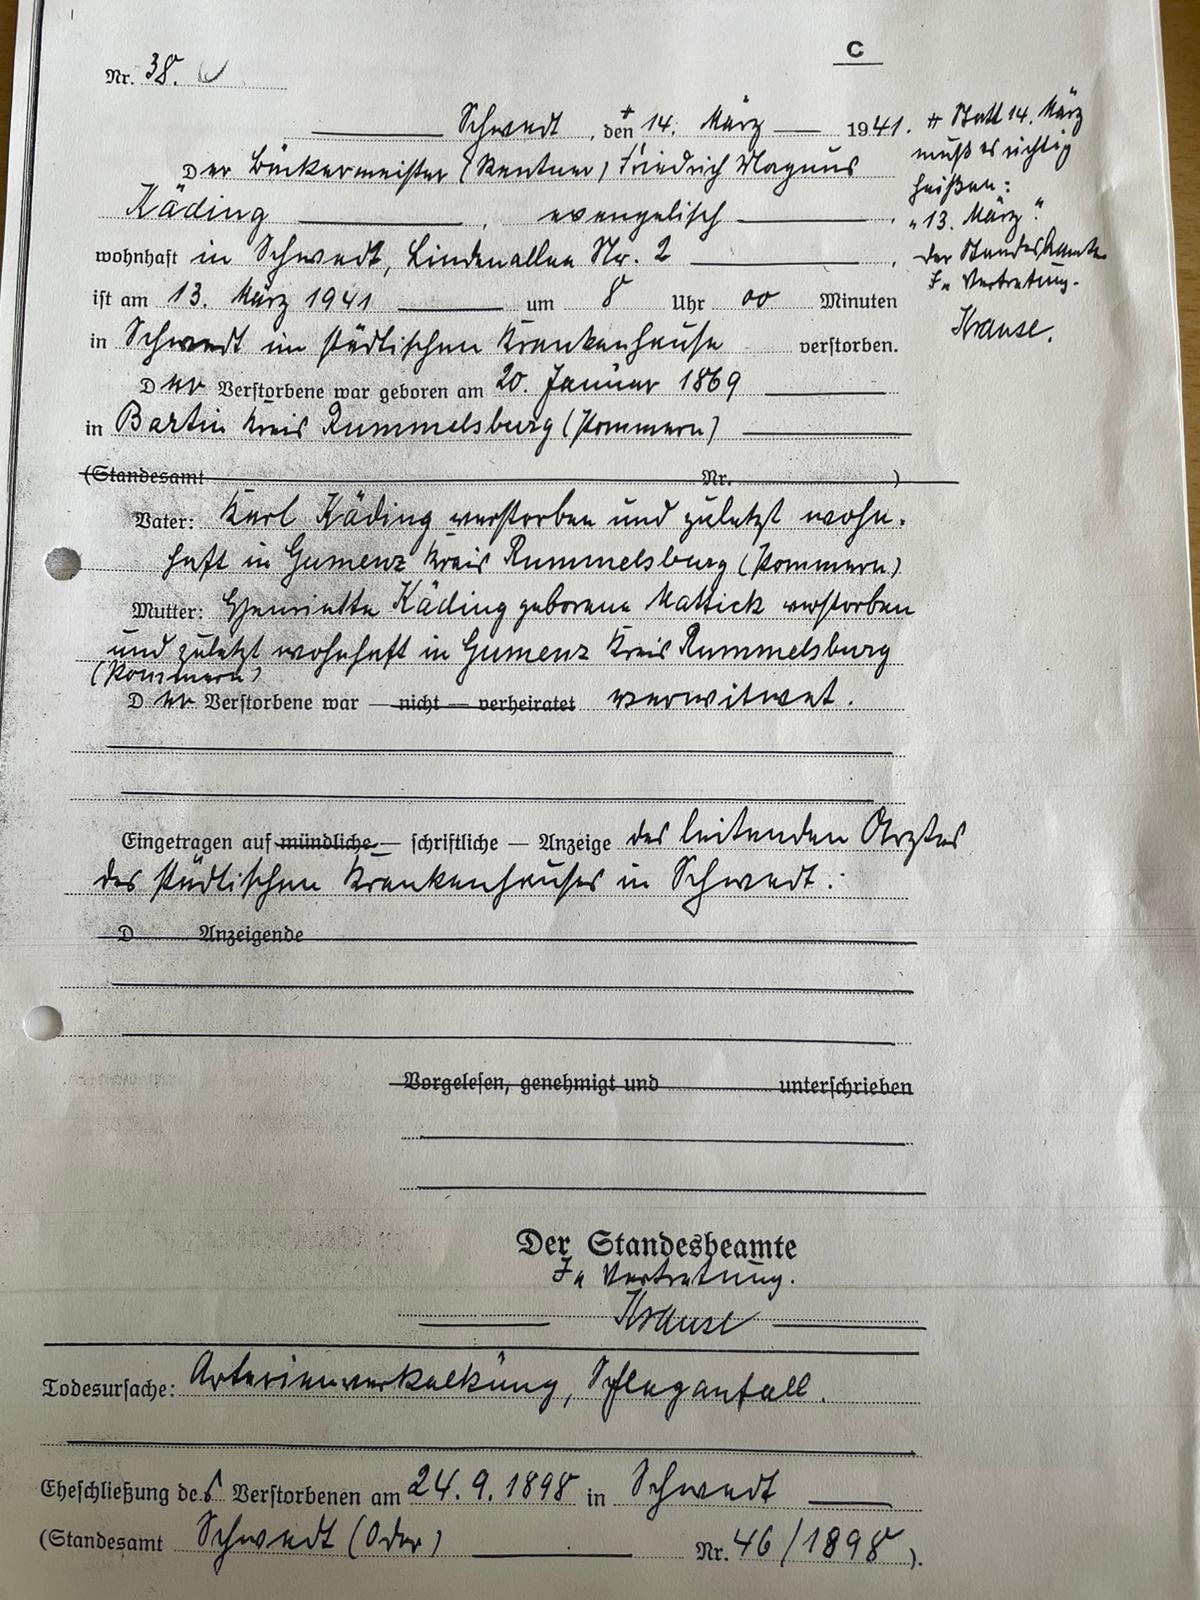 C
Nr. 38.
Schwedt, den 14. März 1941.
Der Bäckermeister (Rentner) Friedrich Magnus
Käding, evangelisch,
wohnhaft in Schwedt, Lindenallee Nr. 2,
ist am 13. März 1941 um 8 Uhr 00 Minuten
in Schwedt im städtischen Krankenhause verstorben.
Der Verstorbene war geboren am 20. Januar 1869
in Bartin Kreis Rummelsburg (Pommern)
(Standesamt Nr. )
Vater: Karl Käding verstorben und zuletzt wohn-
haft in Gumenz Kreis Rummelsburg (Pommern)
Mutter: Henriette Käding geborene Mattick verstorben
und zuletzt wohnhaft in Gumenz Kreis Rummelsburg
(Pommern)
Der Verstorbene war — nicht — verheiratet verwitwet.
Eingetragen auf mündliche — schriftliche — Anzeige des leitenden Arztes
des städtischen Krankenhauses in Schwedt.
D Anzeigende
Vorgelesen, genehmigt und unterschrieben
Der Standesbeamte
In Vertretung.
Krause
Todesursache: Arterienverkalkung, Schlaganfall.
Eheschließung des Verstorbenen am 24.9.1898 in Schwedt
(Standesamt Schwedt (Oder) Nr. 46/1898).
+ Statt 14. März
muß es richtig
heißen:
"13. März"
Der Standesbeamte
In Vertretung.
Krause.